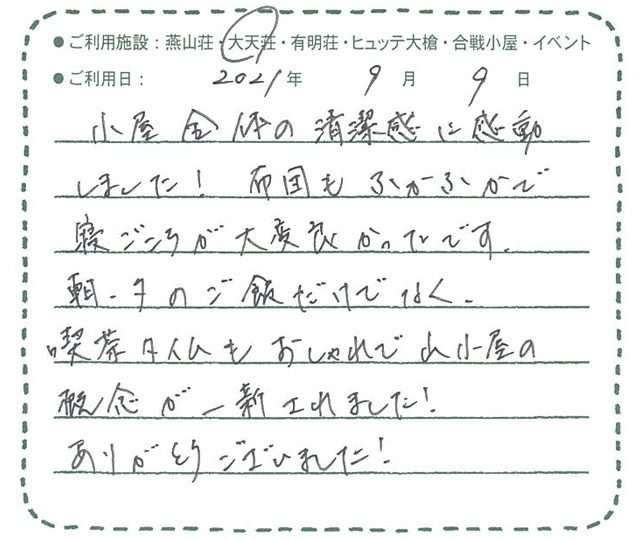 ●ご利用施設：燕山荘・大天荘・有明荘・ヒュッテ大槍・合戦小屋・イベント
●ご利用日： 2021年 9月 9日
小屋全体の清潔感に感動
しました！ 布団もふかふかで
寝ごこちが大変良かったです。
朝・夕のご飯だけでなく、
喫茶タイムもおしゃれで山小屋の
概念が一新されました！
ありがとうございました！